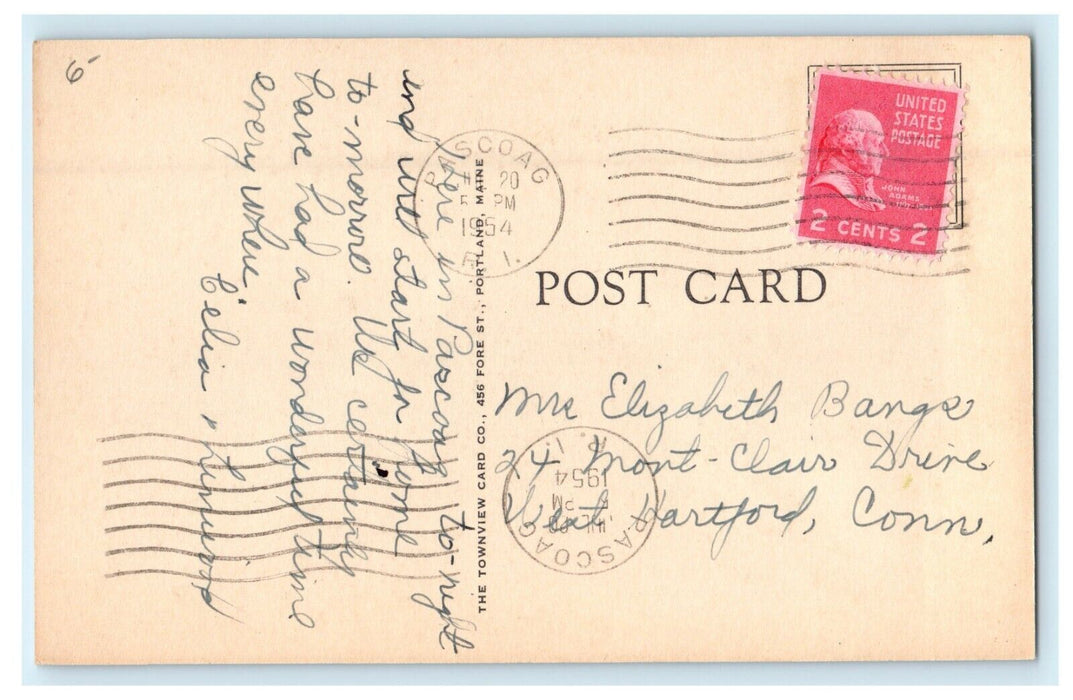 6
Here in Pascoag to-night
and will start for home
to-morrow. We certainly
have had a wonderful time
every where.
Celia & Linwood
THE TOWNVIEW CARD CO., 456 FORE ST., PORTLAND, MAINE
PASCOAG
JUL 20
PM
1954
R. I.
UNITED
STATES
POSTAGE
JOHN
ADAMS
2 CENTS 2
POST CARD
Mrs Elizabeth Bangs
24 Mont-Clair Drive
West Hartford, Conn.
PASCOAG
JUL 20
PM
1954
R. I.